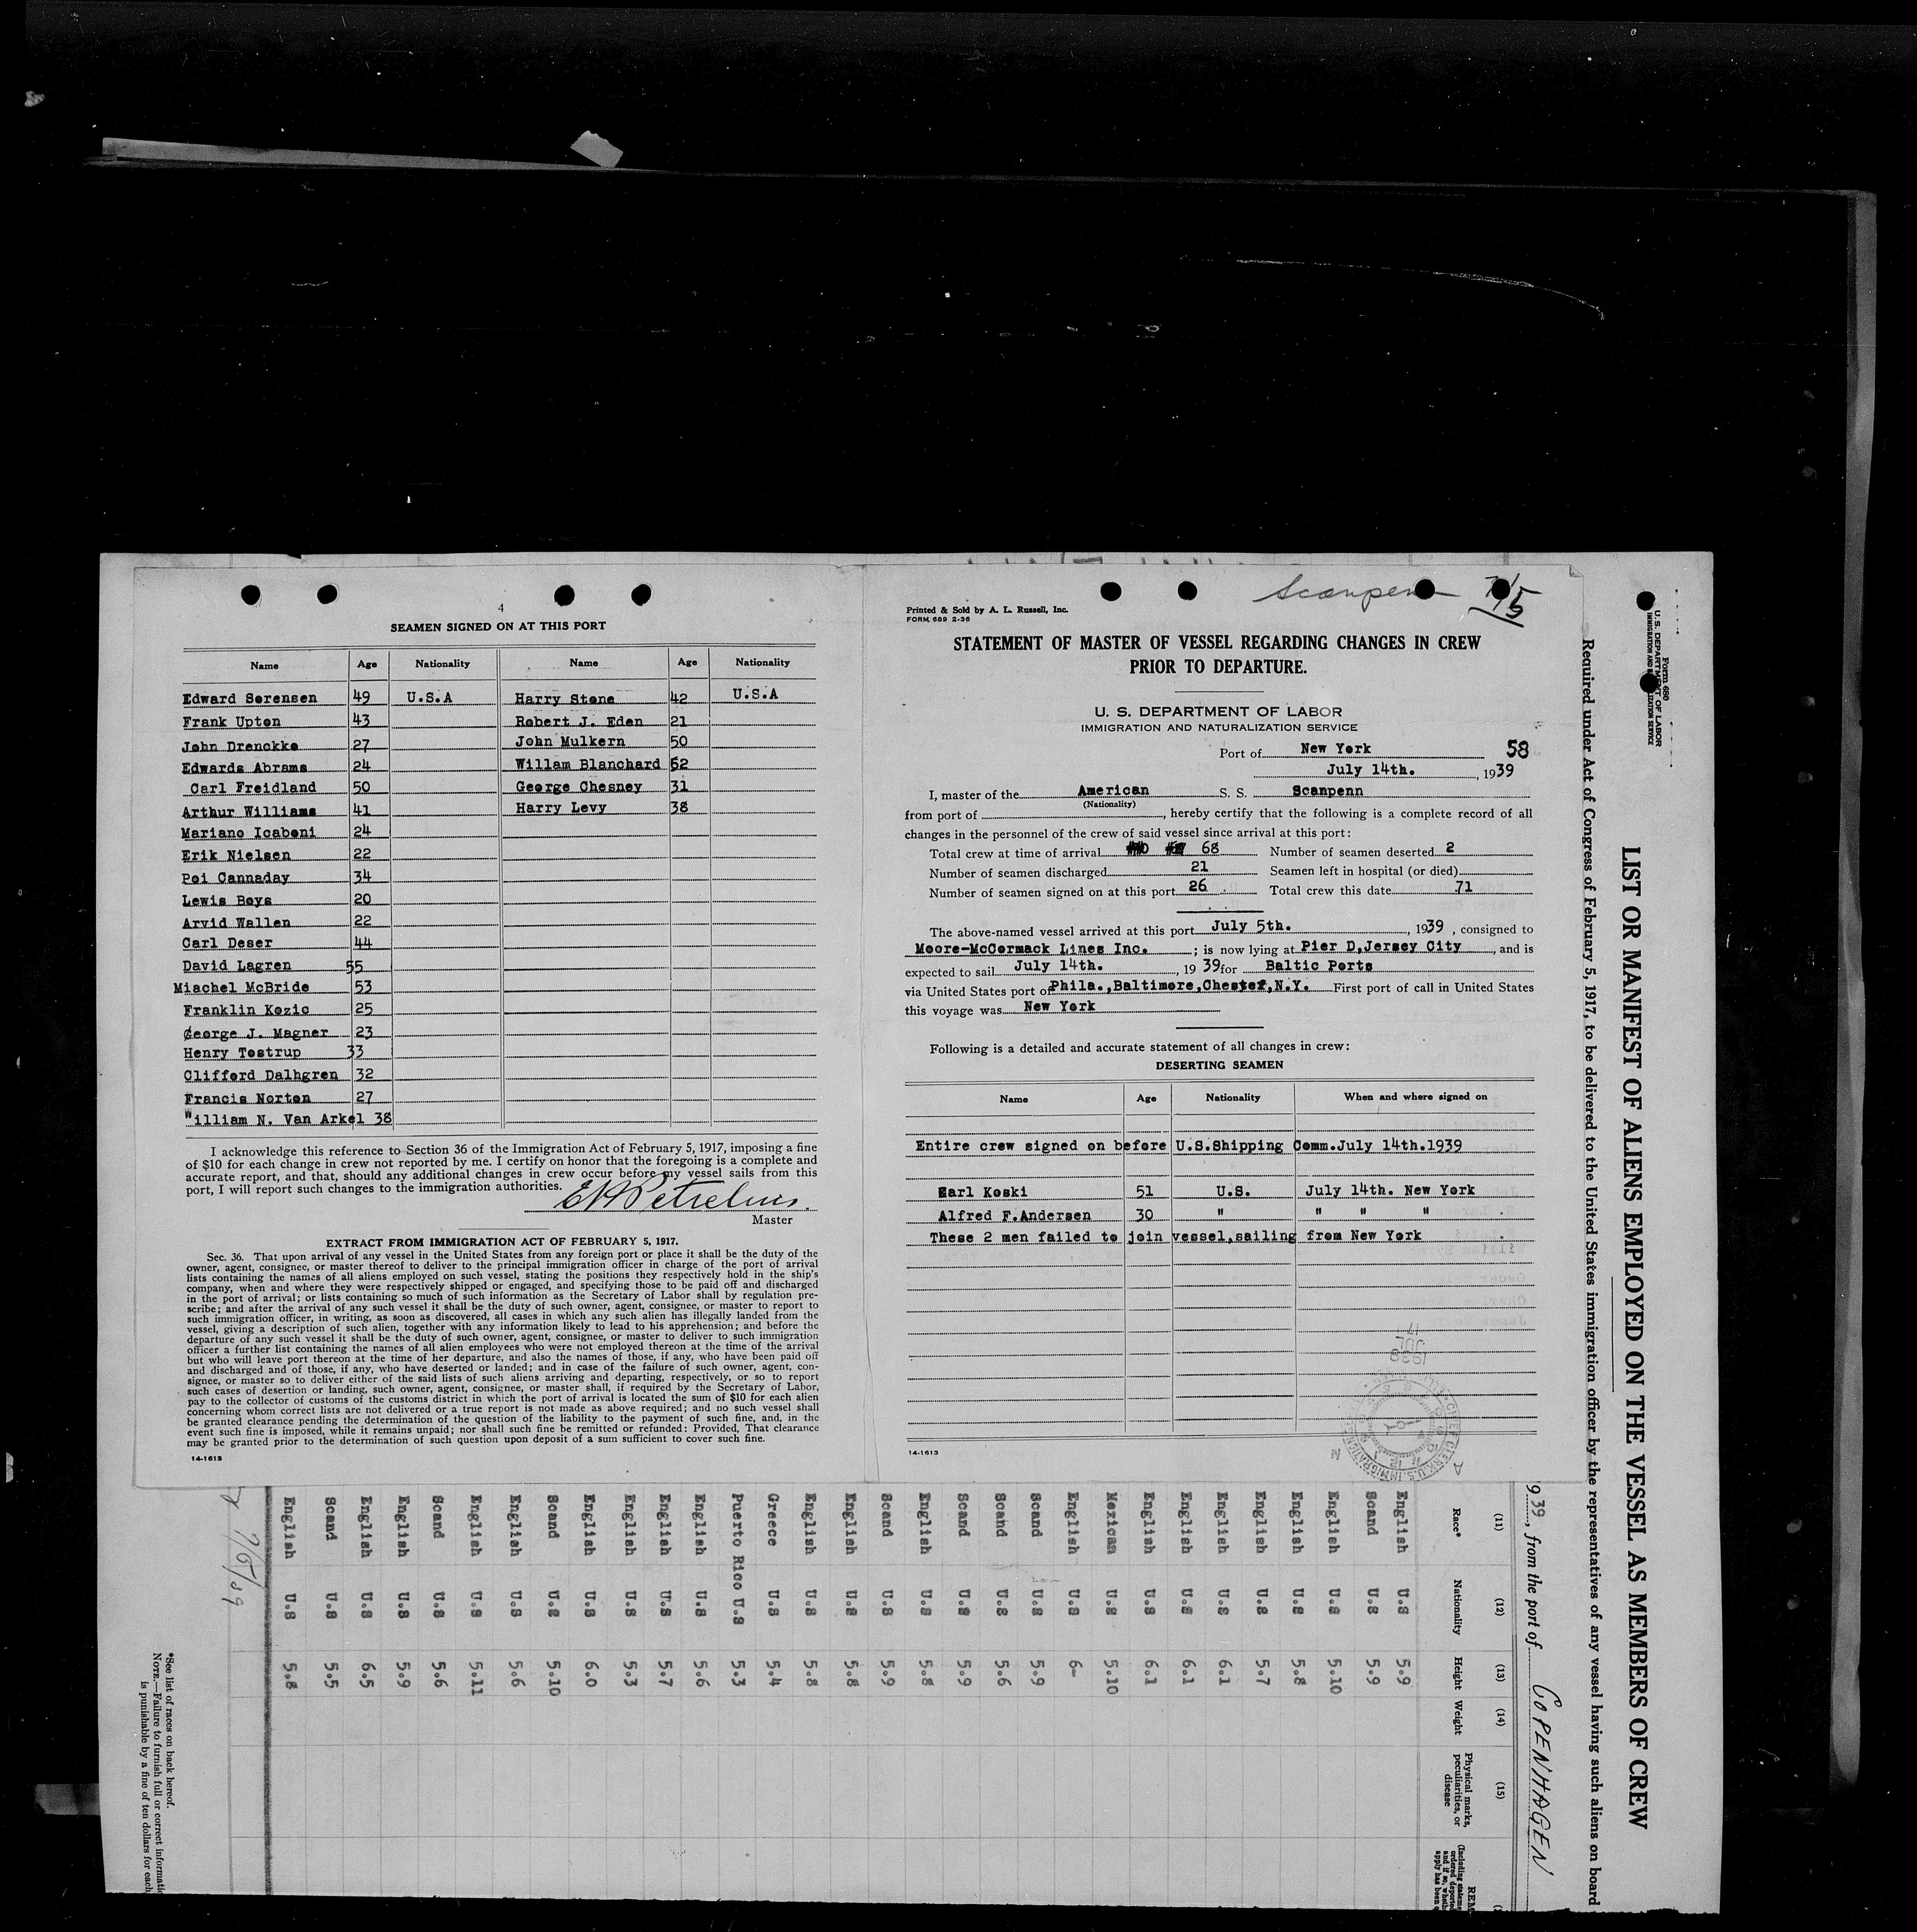 4
SEAMEN SIGNED ON AT THIS PORT
Name Age Nationality Name Age Nationality
Edward Sorensen 49 U.S.A Harry Stone 42 U.S.A
Frank Upton 43 Robert J. Eden 21
John Drenckke 27 John Mulkern 50
Edwards Abrams 24 Willam Blanchard 52
Carl Freidland 50 George Chesney 31
Arthur Williams 41 Harry Levy 38
Mariano Icaboni 24
Erik Nielsen 22
Poi Cannaday 34
Lewis Boys 20
Arvid Wallen 22
Carl Deser 44
David Lagren 55
Miachel McBride 53
Franklin Kozic 25
George J. Magner 23
Henry Tostrup 33
Clifford Dalhgren 32
Francis Norton 27
William N. Van Arkel 38
I acknowledge this reference to Section 36 of the Immigration Act of February 5, 1917, imposing a fine
of $10 for each change in crew not reported by me. I certify on honor that the foregoing is a complete and
accurate report, and that, should any additional changes in crew occur before my vessel sails from this
port, I will report such changes to the immigration authorities.
Master
EXTRACT FROM IMMIGRATION ACT OF FEBRUARY 5, 1917.
Sec. 36. That upon arrival of any vessel in the United States from any foreign port or place it shall be the duty of the
owner, agent, consignee, or master thereof to deliver to the principal immigration officer in charge of the port of arrival
lists containing the names of all aliens employed on such vessel, stating the positions they respectively hold in the ship's
company, when and where they were respectively shipped or engaged, and specifying those to be paid off and discharged
in the port of arrival; or lists containing so much of such information as the Secretary of Labor shall by regulation pre-
scribe; and after the arrival of any such vessel it shall be the duty of such owner, agent, consignee, or master to report to
such immigration officer, in writing, as soon as discovered, all cases in which any such alien has illegally landed from the
vessel, giving a description of such alien, together with any information likely to lead to his apprehension; and before the
departure of any such vessel it shall be the duty of such owner, agent, consignee, or master to deliver to such immigration
officer a further list containing the names of all alien employees who were not employed thereon at the time of the arrival
but who will leave port thereon at the time of her departure, and also the names of those, if any, who have been paid off
and discharged and of those, if any, who have deserted or landed; and in case of the failure of such owner, agent, con-
signee, or master so to deliver either of the said lists of such aliens arriving and departing, respectively, or so to report
such cases of desertion or landing, such owner, agent, consignee, or master shall, if required by the Secretary of Labor,
pay to the collector of customs of the customs district in which the port of arrival is located the sum of $10 for each alien
concerning whom correct lists are not delivered or a true report is not made as above required; and no such vessel shall
be granted clearance pending the determination of the question of the liability to the payment of such fine, and, in the
event such fine is imposed, while it remains unpaid; nor shall such fine be remitted or refunded: Provided, That clearance
may be granted prior to the determination of such question upon deposit of a sum sufficient to cover such fine.
14-1613
Scanpenn 7/5
Printed & Sold by A. L. Russell, Inc.
FORM 689 2-36
STATEMENT OF MASTER OF VESSEL REGARDING CHANGES IN CREW
PRIOR TO DEPARTURE.
U. S. DEPARTMENT OF LABOR
IMMIGRATION AND NATURALIZATION SERVICE
Port of New York 58
July 14th. , 1939
I, master of the American S. S. Scanpenn
(Nationality)
from port of , hereby certify that the following is a complete record of all
changes in the personnel of the crew of said vessel since arrival at this port:
Total crew at time of arrival 68 Number of seamen deserted 2
Number of seamen discharged 21 Seamen left in hospital (or died)
Number of seamen signed on at this port 26 Total crew this date 71
The above-named vessel arrived at this port July 5th. , 1939 , consigned to
Moore-McCormack Lines Inc. ; is now lying at Pier D,Jersey City , and is
expected to sail July 14th. , 1939 for Baltic Ports
via United States port of Phila.,Baltimore,Chester,N.Y. First port of call in United States
this voyage was New York
Following is a detailed and accurate statement of all changes in crew:
DESERTING SEAMEN
Name Age Nationality When and where signed on
Entire crew signed on before U.S.Shipping Comm.July 14th.1939
Earl Koski 51 U.S. July 14th. New York
Alfred F.Andersen 30 " " " "
These 2 men failed to join vessel,sailing from New York
14-1613
Form 680
U. S. DEPARTMENT OF LABOR
IMMIGRATION AND NATURALIZATION SERVICE
LIST OR MANIFEST OF ALIENS EMPLOYED ON THE VESSEL AS MEMBERS OF CREW
Required under Act of Congress of February 5, 1917, to be delivered to the United States immigration officer by the representatives of any vessel having such aliens on board
939 , from the port of COPENHAGEN
(11) (12) (13) (14) (15)
Race* Nationality Height Weight Physical marks, peculiarities, or disease
English U.S 5.9
Scand U.S 5.9
English U.S 5.10
English U.S 5.8
English U.S 5.7
English U.S 6.1
English U.S 6.1
English U.S 6.1
Mexican U.S 5.10
English U.S 6-
Scand U.S 5.9
Scand U.S 5.6
Scand U.S 5.9
English U.S 5.8
Scand U.S 5.9
English U.S 5.8
English U.S 5.8
Greece U.S 5.4
Puerto Rico U.S 5.3
English U.S 5.6
English U.S 5.7
English U.S 5.3
English U.S 6.0
Scand U.S 5.10
English U.S 5.6
English U.S 5.11
Scand U.S 5.6
English U.S 5.9
English U.S 6.5
Scand U.S 5.5
English U.S 5.8
7/5/39
*See list of races on back hereof.
NOTE.—Failure to furnish full or correct informati
is punishable by a fine of ten dollars for each